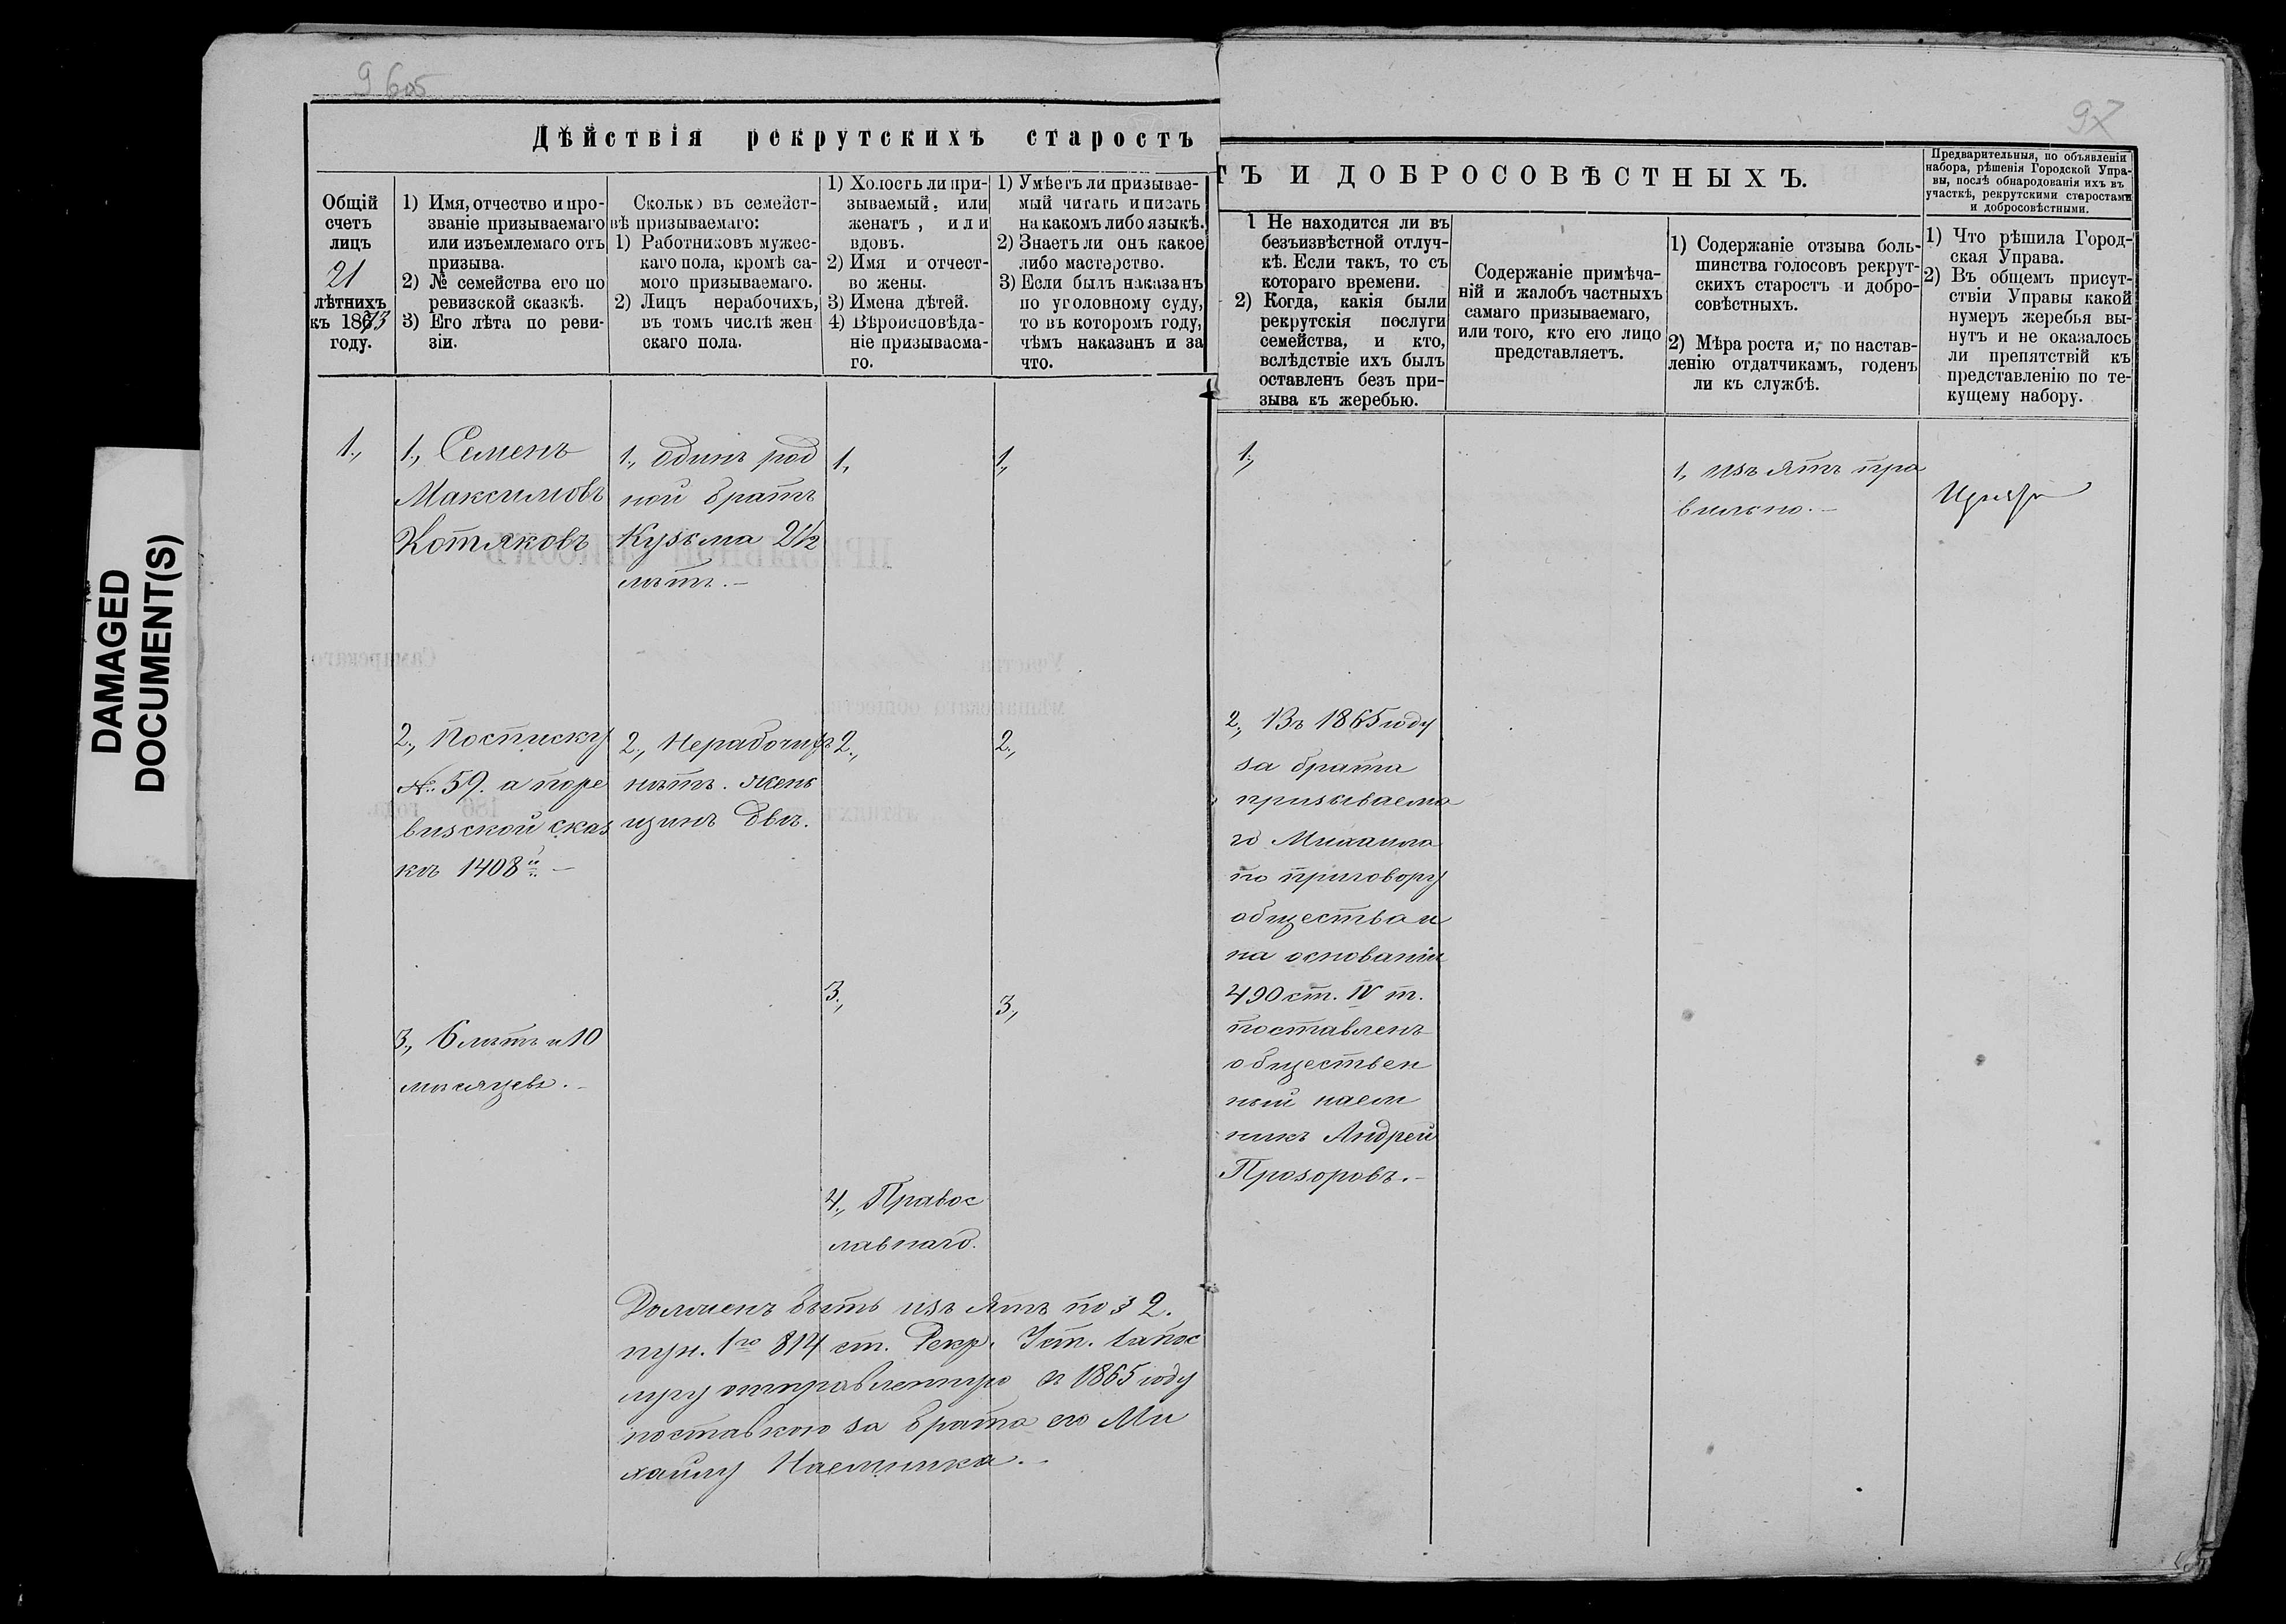 9 605
97
DAMAGED
DOCUMENT(S)
Дѣйствія рекрутскихъ старостъ
ТЪ И ДОБРОСОВѢСТНЫХЪ.
Общій
счетъ
лицъ
21
лѣтнихъ
къ 1873
году.
1) Имя, отчество и про-
званіе призываемаго
или изъемлемаго отъ
призыва.
2) № семейства его по
ревизской сказкѣ.
3) Его лѣта по реви-
зіи.
Сколько въ семейст-
вѣ призываемаго:
1) Работниковъ мужес-
каго пола, кромѣ са-
мого призываемаго.
2) Лицъ нерабочихъ,
въ томъ числѣ жен
скаго пола.
1) Холостъ ли при-
зываемый, или
женатъ, или
вдовъ.
2) Имя и отчест-
во жены.
3) Имена дѣтей.
4) Вѣроисповѣда-
ніе призываема-
го.
1) Умѣетъ ли призывае-
мый читать и писать
на какомъ либо языкѣ.
2) Знаетъ ли онъ какое
либо мастерство.
3) Если былъ наказанъ
по уголовному суду,
то въ которомъ году,
чѣмъ наказанъ и за
что.
1 Не находится ли въ
безъизвѣстной отлуч-
кѣ. Если такъ, то съ
котораго времени.
2) Когда, какія были
рекрутскія послуги
семейства, и кто,
вслѣдствіе ихъ былъ
оставленъ безъ при-
зыва къ жеребью.
Содержаніе примѣча-
ній и жалобъ частныхъ
самаго призываемаго,
или того, кто его лицо
представляетъ.
1) Содержаніе отзыва боль-
шинства голосовъ рекрут-
скихъ старостъ и добро-
совѣстныхъ.
2) Мѣра роста и, по настав-
ленію отдатчикамъ, годенъ
ли къ службѣ.
Предварительныя, по объявленіи
набора, рѣшенія Городской Упра-
вы, послѣ обнародованія ихъ въ
участкѣ, рекрутскими старостами
и добросовѣстными.
1) Что рѣшила Город-
ская Управа.
2) Въ общемъ присут-
ствіи Управы какой
нумеръ жеребья вы-
нутъ и не оказалось
ли препятствій къ
представленію по те-
кущему набору.
1.,
1., Семенъ
Максимовъ
Котяковъ
2., Посписку
№ 59. а поре
визской сказ
кѣ 1408й –
3., 6 лѣтъ и 10
мѣсяцевъ. –
1., одинъ род
ной братъ
Кузьма 2½
лѣтъ. –
2., Нерабочихъ
нѣтъ. жен
щинъ двѣ.
1,
2.,
3.,
4., Правос
лавнаго.
1.,
2.,
3.,
Долженъ быть изъ ятъ по § 2.
пун. 1го 814 ст. Рекр. Уст. запос
лугу отправленную въ 1865 году
поставкою за брата его Ми
хайлу Наемника. –
1.,
2., Въ 1865 году
за брата
призываема
го Михаила
по приговору
общества и
на основаніи
490 ст. IV т.
поставленъ
обществен
ный наем
никъ Андрей
Прозоровъ. –
1, изъ ятъ пра
вильно. –